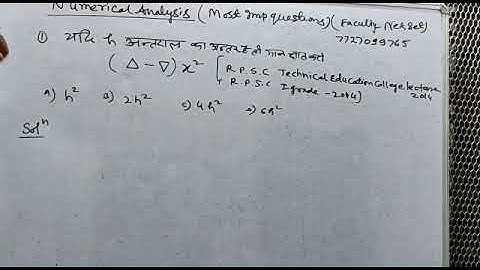 Numerical Analysis (Most Imp questions) (Faculty Net Set)
7727099765
① यदि h अन्तराल का अन्तर है तो मान ज्ञात करो
(Δ - ∇) x² [R.P.S.C Technical Education College lecturer 2014
+ R.P.S.C I grade - 2014]
A) h² B) 2h² C) 4h² D) 6h²
Solⁿ